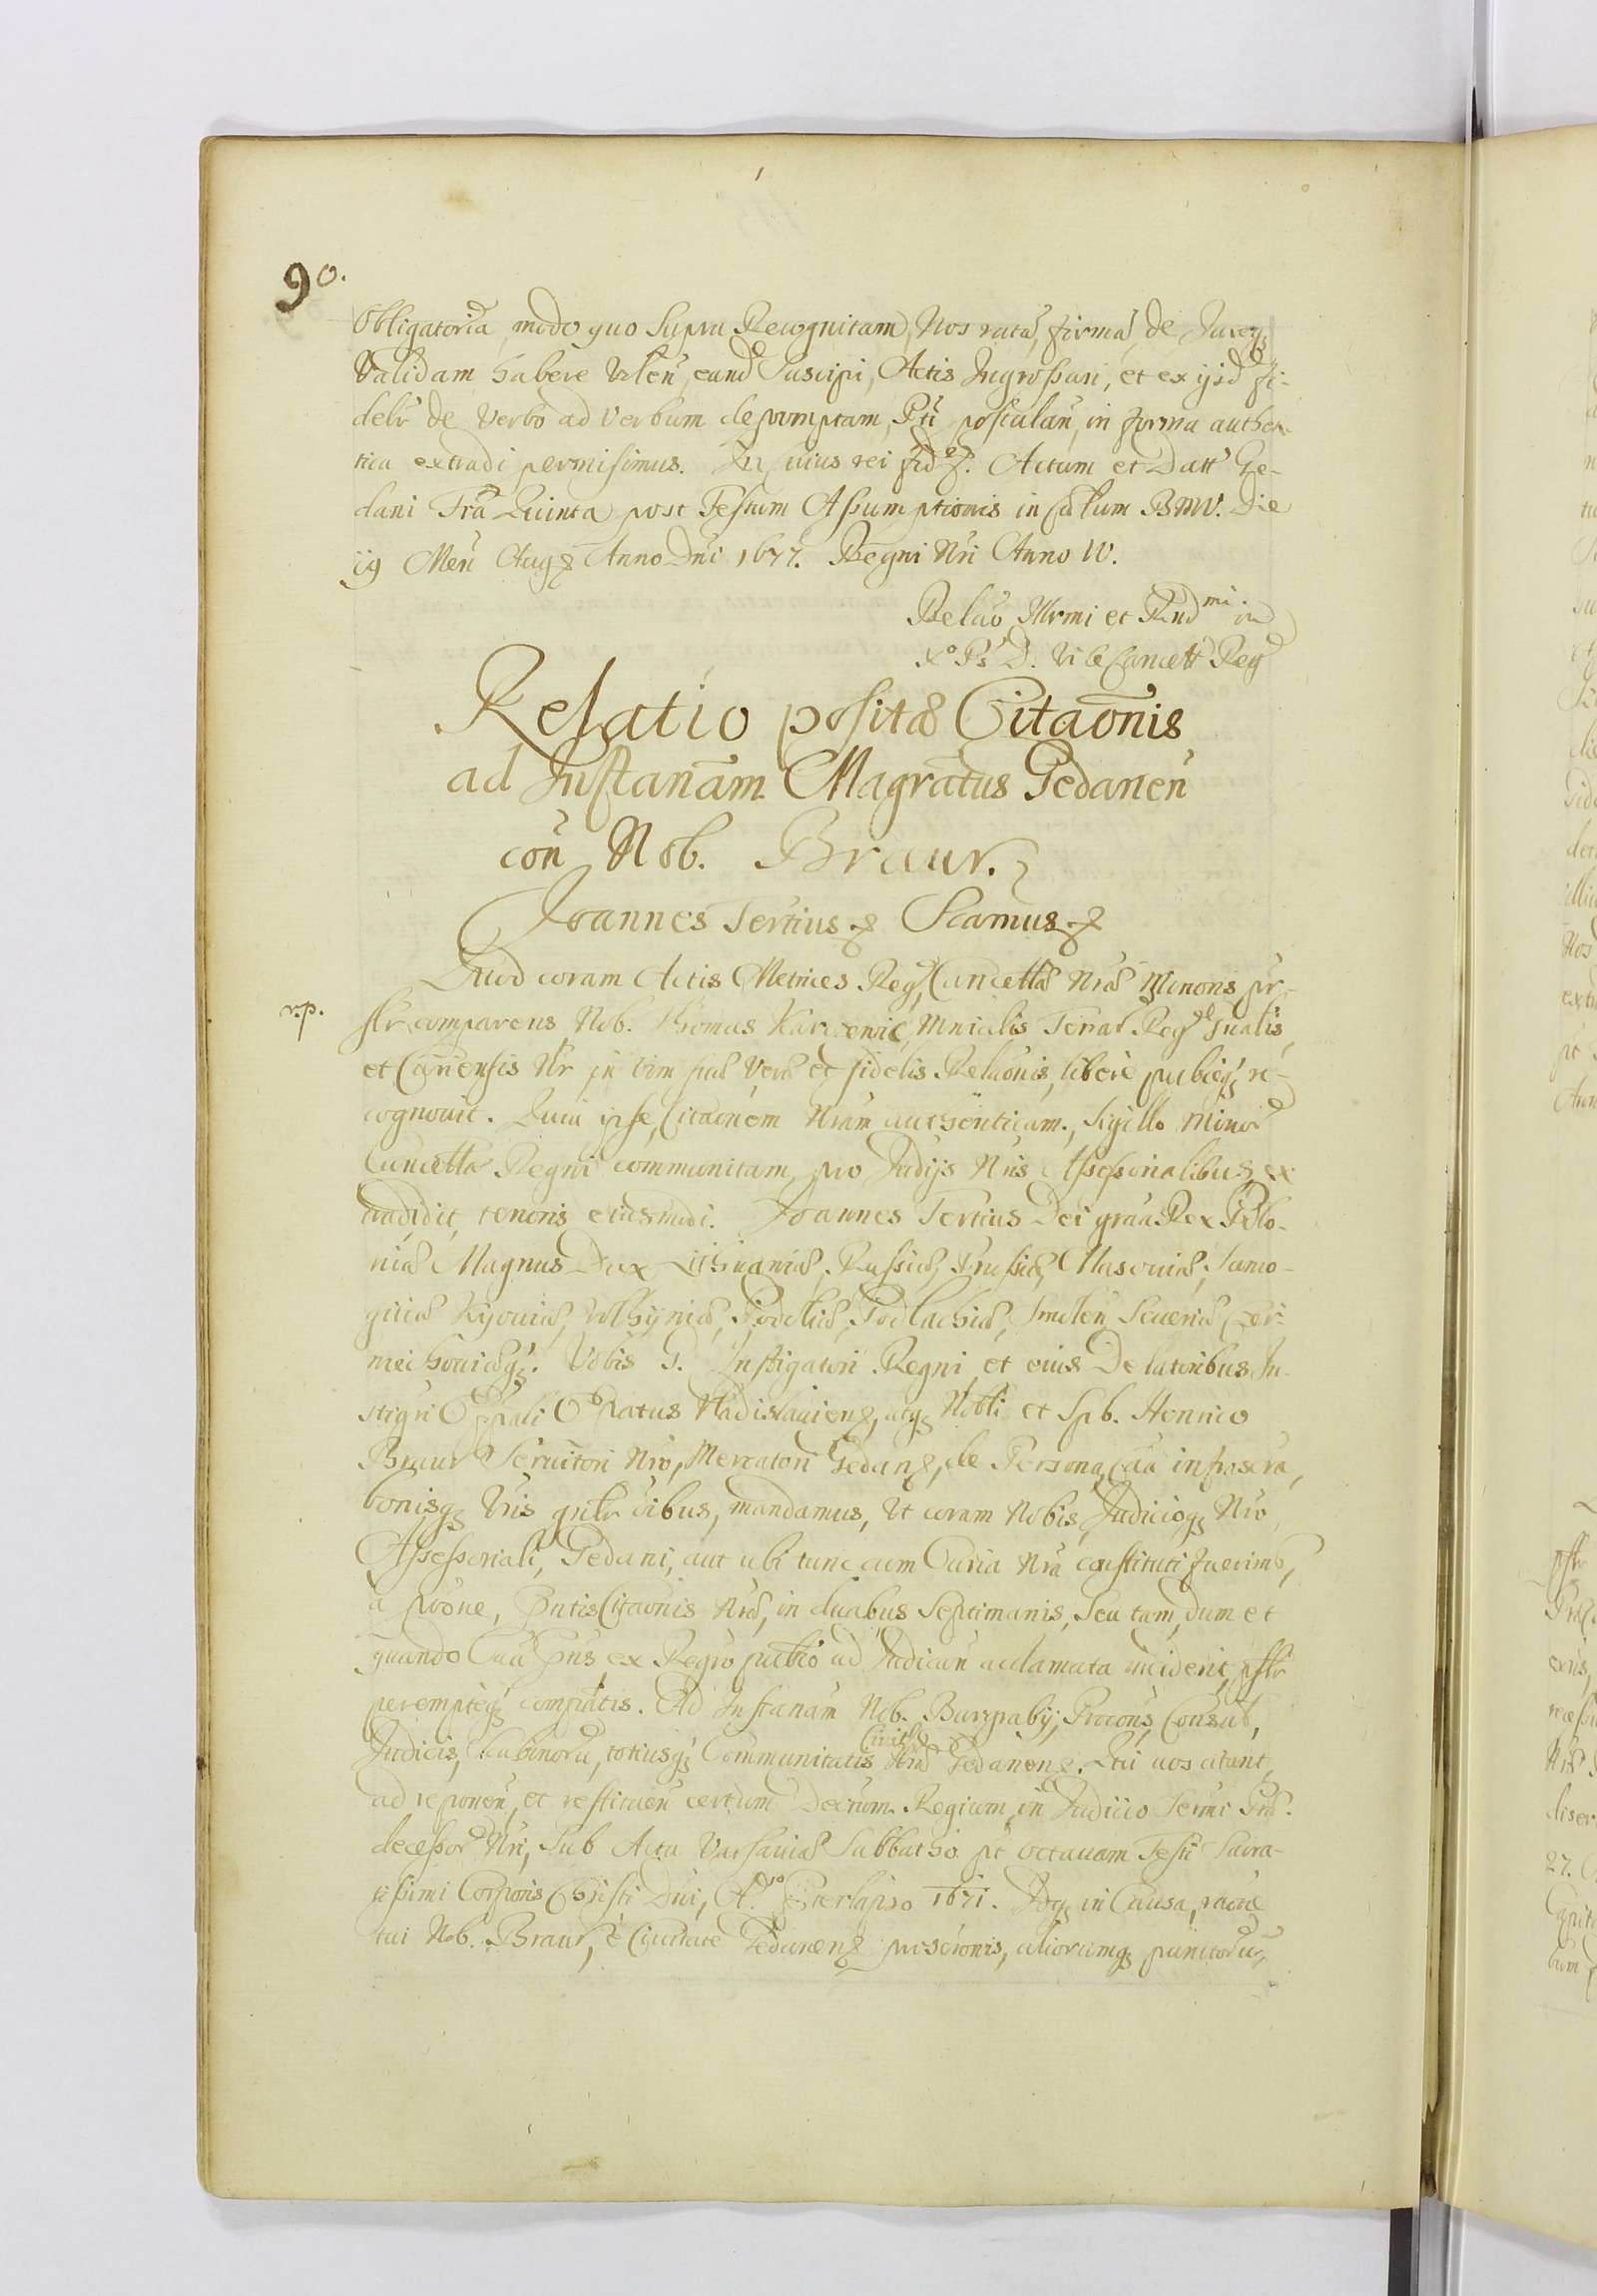 90.
Obligatoriã, modo quo supra Recognitam, Nos ratã, firmã de Jureq₃
Validam habere Vole͠n, eand͠ Suscipi, Actis Ingrossari, et ex ijsd͠ fi-
delr̃ de Verbo ad Verbum depromptam, Pti postulañ, in forma authen-
tica extradi permisimus. In Cuius rei fid͠ &. Actum et Datt͠ Ge-
dani Fr̃a Quinta post Festum Assumptionis in Cælum BMV. Die
19 Meñ Aug& Anno Dñi 1677. Regni Nr̃i Anno IV.
Relaõ Illrmi et Rndmi in
Xo Ps̃ D. ViceCancell͠ Reg͠
Relatio positæ Citaõnis
ad Instanãm Magrãtus Gedaneñ
coñ Nob. Braur.
Joannes Tertius & Scamus &
Quod coram Actis Metrices Reg͠, Cancellæ Nræ Minoris pr-
r.p.
slr comparens Nob. Thomas Mnialis Terrar͠ Reg͠ Gñalis,
et Curiensis Nr̃ in vim suæ Veræ et fidelis Relaõnis, liberè publ̃eq₃ re-
cognouit. Quia ipse, Citaõnem Nrãm authenticam, Sigillo Minor͠
Cancellæ Regni communitam, pro Judijs Nr̃is Assessorialibus, ex
tradidit, tenoris eiusmodi. Joannes Tertius Dei grãa Rex Polo-
niæ Magnus Dux Lithuaniæ, Russiæ, Prussiæ, Masoviæ, Samo-
gitiæ Kyoviæ, Volhyniæ, Podoliæ, Podlachiæ, Smoleñ Seueriæ Czer-
niechoviæq₃. Vobis G. Instigatori Regni et eius Delatoribus In-
stigri Opp̃ali Opp̃atus Vladislauien&, atq₃ Nobli et Spb. Henrico
Braur Seruitori Nr̃o, Mercatori Gedan&, de Persona, Cãa infrascra,
bonisq₃ Vr̃is gñlr õibus, mandamus, Ut coram Nobis, Judicioq₃ Nr̃o
Assessoriali, Gedani, aut ubi tunc cum Curia Nr̃a constituti fuerimus,
a põõne, P̃ntis Citaõnis Nræ, in duabus Septimanis, Seu tam, dum et
quando Cãa P̃ns, ex Reg̃ro publico ad Judicañ acclamata inciderit, pslr̃
peremptieq₃ comp̃atis. Ad Instanãm Nob. Burgrabij, Procons̃, Consul͠,
Judicis, Scabinorũ, totiusq₃ Communitatis Civit͠is Nræ Gedanen&. Qui uos citant,
ad reponeñ, et restitueñ certum Decrũm Regium in Judicio Sermi Præ-
decessor͠ Nr̃i, Sub Acta Varsaviæ Sabbatho pt͠ octauam Festi Sacra-
tissimi Corporis Christi Dñi, Ao Præterlapso 1671. Inq₃ in Causa, raõne
tui Nob. Braur, è Ciuitate Gedanen& pros̃crõnis, aliorumq₃ punctorũ,